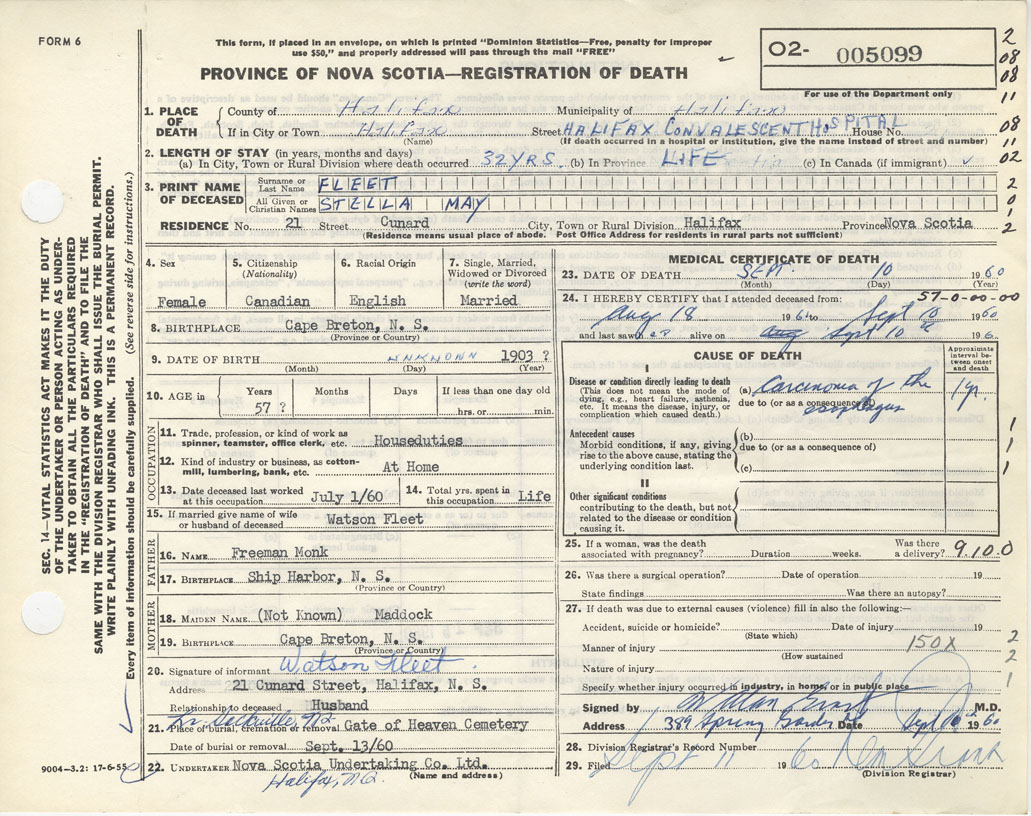 FORM 6
This form, if placed in an envelope, on which is printed "Dominion Statistics—Free, penalty for improper
use $50," and properly addressed will pass through the mail "FREE"
O2- 005099
For use of the Department only
2
08
08
11
08
11
02
2
0
1
2
PROVINCE OF NOVA SCOTIA—REGISTRATION OF DEATH
1. PLACE OF DEATH
County of Halifax Municipality of Halifax
If in City or Town Halifax Street HALIFAX CONVALESCENT HOSPITAL House No.
(Name) (If death occurred in a hospital or institution, give the name instead of street and number)
2. LENGTH OF STAY (in years, months and days)
(a) In City, Town or Rural Division where death occurred 32 YRS. (b) In Province LIFE (c) In Canada (if immigrant)
3. PRINT NAME OF DECEASED
Surname or Last Name FLEET
All Given or Christian Names STELLA MAY
RESIDENCE No. 21 Street Cunard City, Town or Rural Division Halifax Province Nova Scotia
(Residence means usual place of abode. Post Office Address for residents in rural parts not sufficient)
SEC. 14—VITAL STATISTICS ACT MAKES IT THE DUTY
OF THE UNDERTAKER OR PERSON ACTING AS UNDER-
TAKER TO OBTAIN ALL THE PARTICULARS REQUIRED
IN THE "REGISTRATION OF DEATH" AND FILE THE
SAME WITH THE DIVISION REGISTRAR WHO SHALL ISSUE THE BURIAL PERMIT.
WRITE PLAINLY WITH UNFADING INK. THIS IS A PERMANENT RECORD.
Every item of information should be carefully supplied. (See reverse side for instructions.)
4. Sex
Female
5. Citizenship
(Nationality)
Canadian
6. Racial Origin
English
7. Single, Married,
Widowed or Divorced
(write the word)
Married
8. BIRTHPLACE Cape Breton, N. S.
(Province or Country)
9. DATE OF BIRTH UNKNOWN 1903 ?
(Month) (Day) (Year)
10. AGE in
Years Months Days If less than one day old
57 ? hrs. or min.
OCCUPATION
11. Trade, profession, or kind of work as
spinner, teamster, office clerk, etc. Houseduties
12. Kind of industry or business, as cotton-
mill, lumbering, bank, etc. At Home
13. Date deceased last worked
at this occupation. July 1/60
14. Total yrs. spent in
this occupation. Life
15. If married give name of wife
or husband of deceased Watson Fleet
FATHER
16. NAME Freeman Monk
17. BIRTHPLACE Ship Harbor, N. S.
(Province or Country)
MOTHER
18. MAIDEN NAME (Not Known) Maddock
19. BIRTHPLACE Cape Breton, N. S.
(Province or Country)
20. Signature of informant Watson Fleet
Address 21 Cunard Street, Halifax, N. S.
Relationship to deceased Husband
Sackville, N.S.
21. Place of burial, cremation or removal Gate of Heaven Cemetery
Date of burial or removal Sept. 13/60
22. UNDERTAKER Nova Scotia Undertaking Co. Ltd.
Halifax, N.S. (Name and address)
9004—3.2: 17-6-55
MEDICAL CERTIFICATE OF DEATH
23. DATE OF DEATH SEPT. 10 1960
(Month) (Day) (Year)
57-0-00-00
24. I HEREBY CERTIFY that I attended deceased from:
Aug 18 19 to Sept 10 1960
and last saw h er alive on Sept 10 196
CAUSE OF DEATH
Approximate interval between onset and death
I
Disease or condition directly leading to death
(This does not mean the mode of
dying, e.g., heart failure, asthenia,
etc. It means the disease, injury, or
complication which caused death.)
(a) Carcinoma of the
due to (or as a consequence of)
esophagus
1 yr.
Antecedent causes
Morbid conditions, if any, giving
rise to the above cause, stating the
underlying condition last.
(b)
due to (or as consequence of)
(c)
1
1
1
II
Other significant conditions
contributing to the death, but not
related to the disease or condition
causing it.
25. If a woman, was the death
associated with pregnancy? Duration weeks. Was there
a delivery? 9.10.0
26. Was there a surgical operation? Date of operation 19
State findings Was there an autopsy?
27. If death was due to external causes (violence) fill in also the following:—
Accident, suicide or homicide? Date of injury 19
(State which)
Manner of injury 150X 2
(How sustained) 2
Nature of injury 1
Specify whether injury occurred in industry, in home or in public place
Signed by M.D.
Address 389 Spring Garden Date Sept 1960
28. Division Registrar's Record Number
29. Filed Sept 11 1960
(Division Registrar)